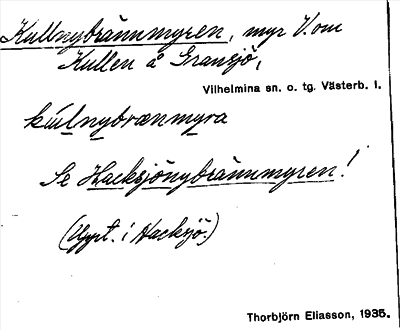 Kullnybrännmyren, myr V. om
Kullen å Gransjö,
Vilhelmina sn. o. tg. Västerb. l.
kulnybrænmyra
Se Hacksjönybrännmyren!
(Uppt. i Hacksjö.)
Thorbjörn Eliasson, 1935.